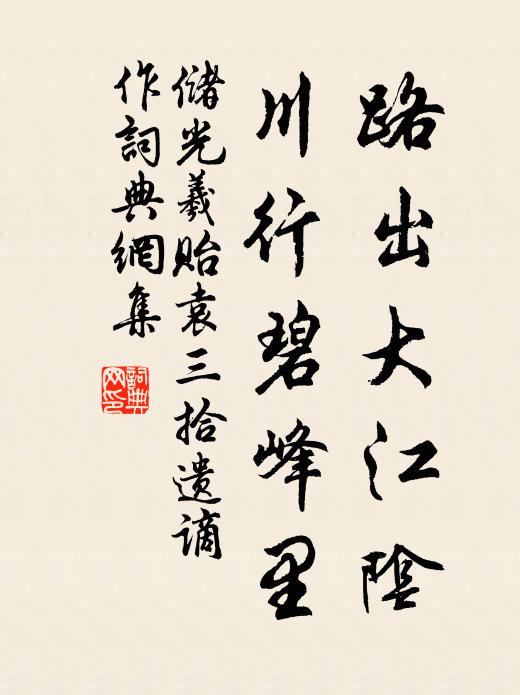 路出大江陰
川行碧峰里
儲光羲貽袁三拾遺謫
作詞典網集
詞典網印